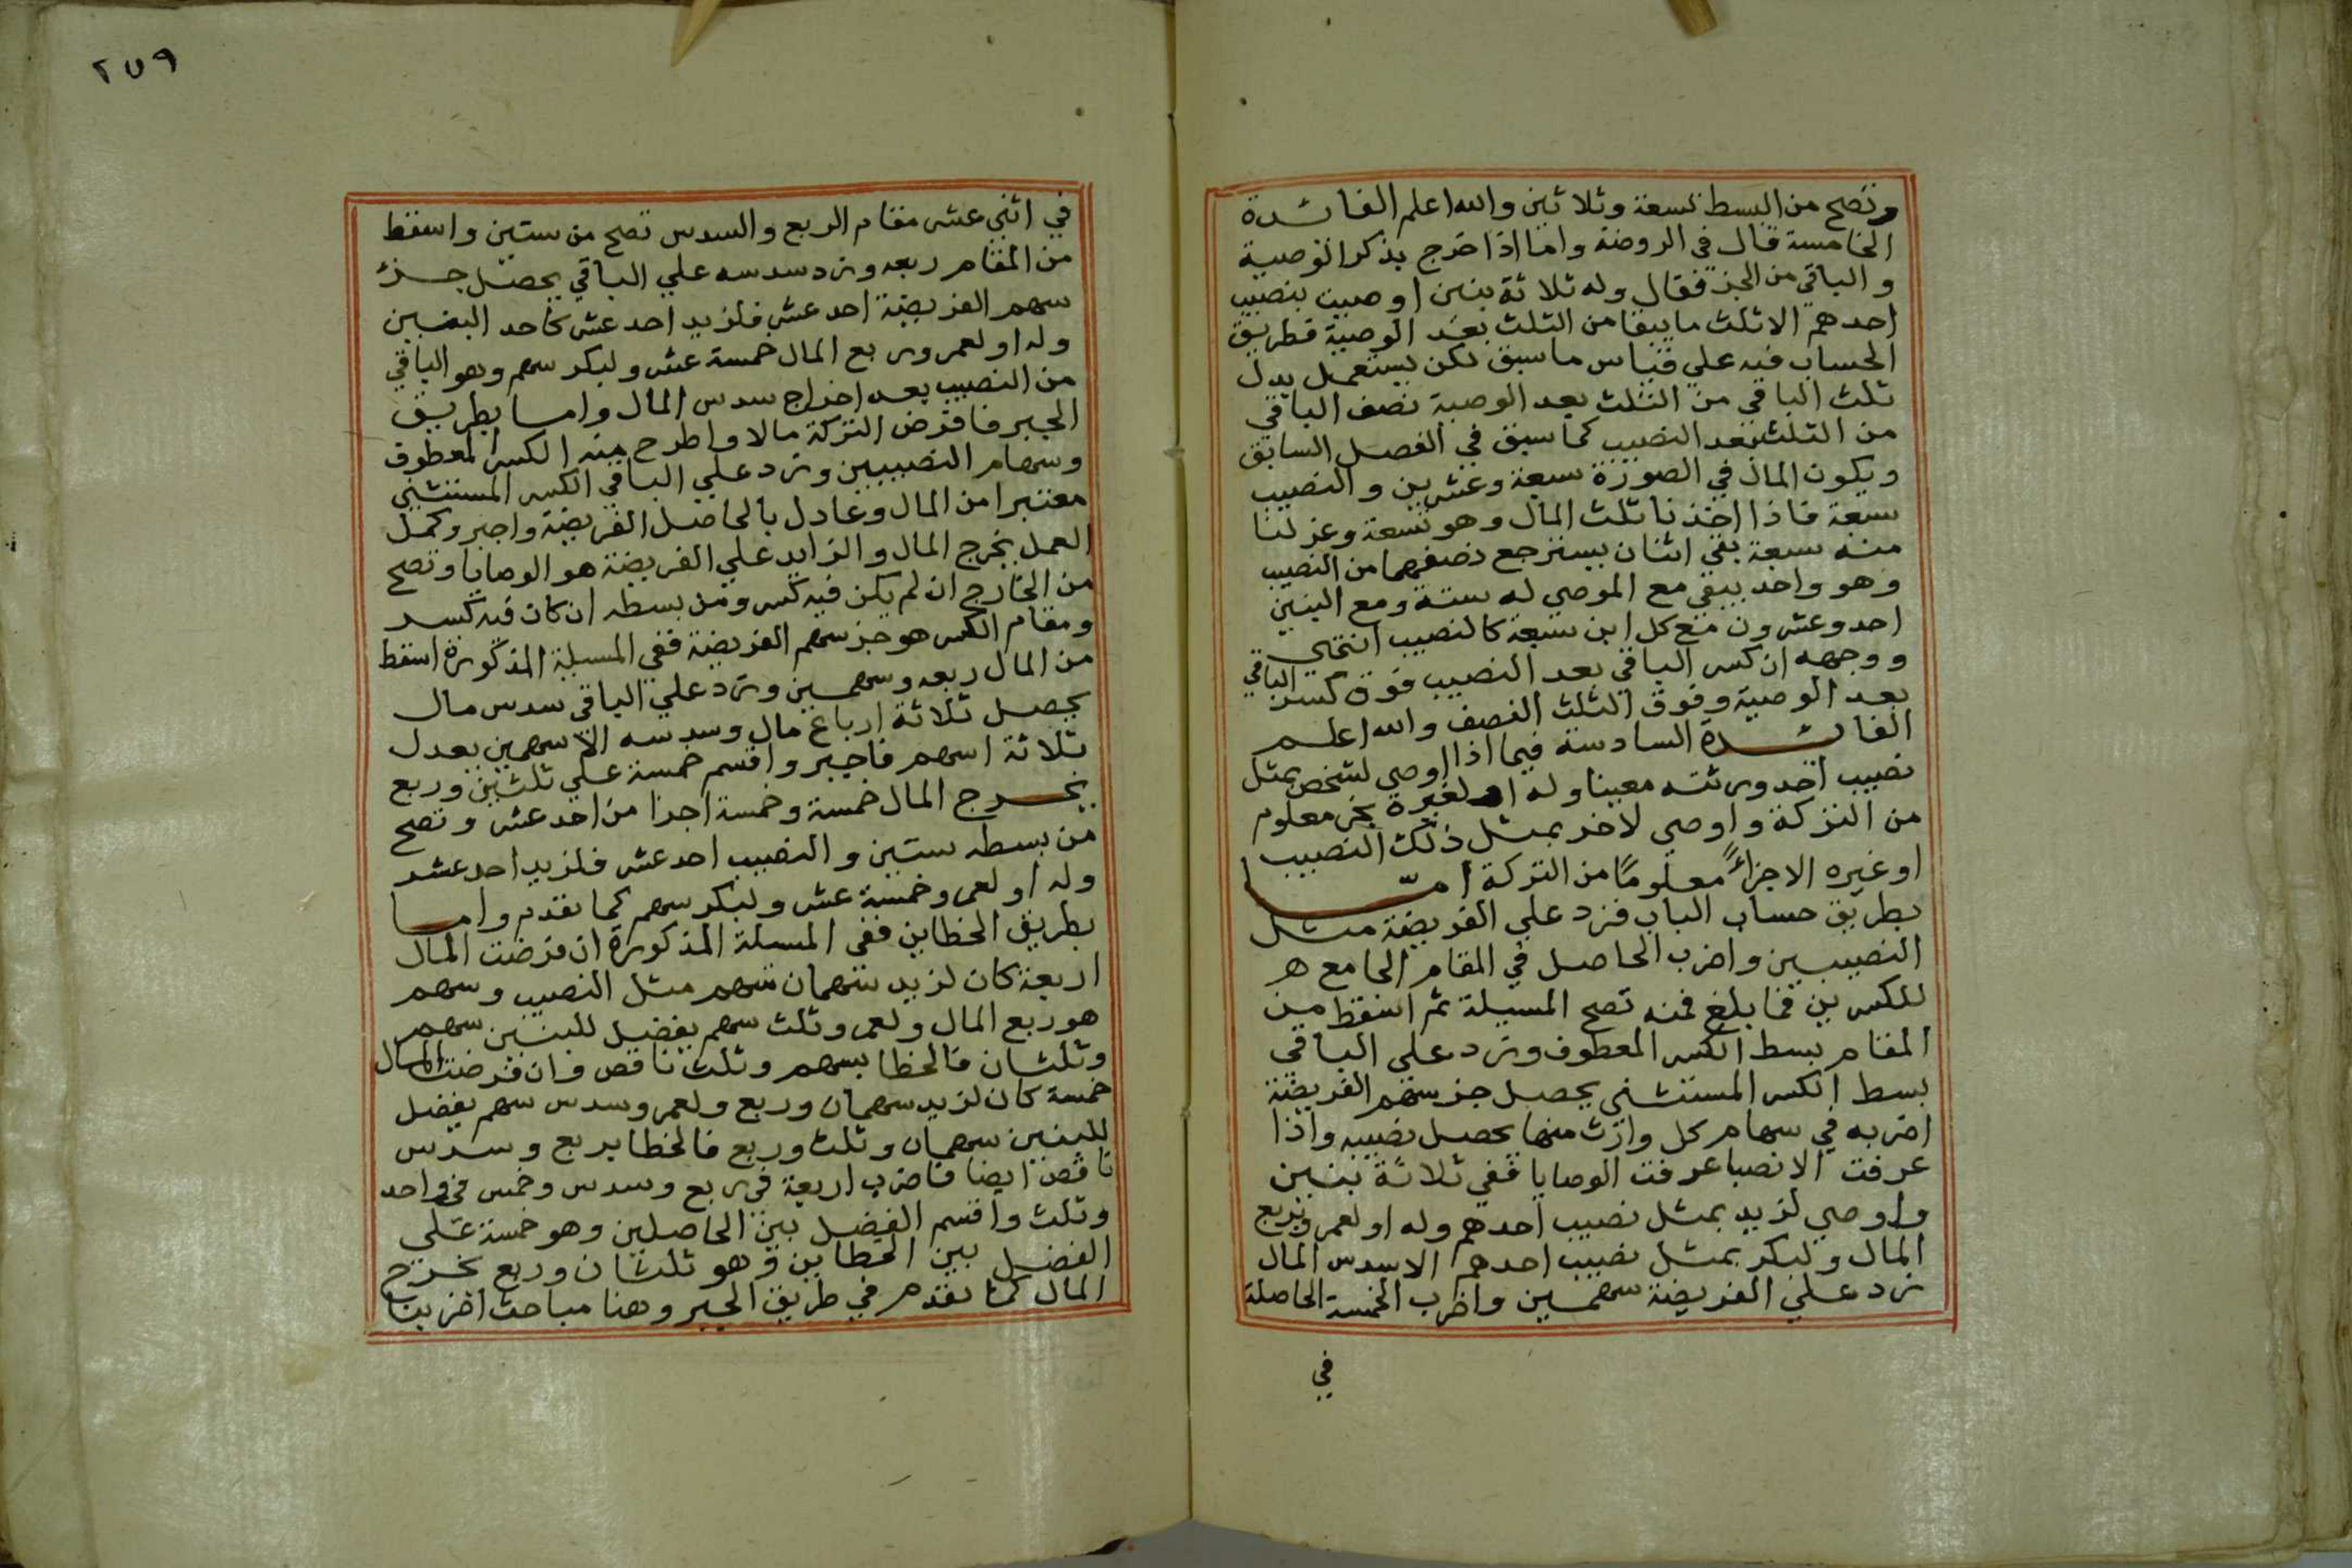 وتصح من البسط تسعة وثلاثين والله اعلم الفائدة
الخامسة قال في الروضة واما اذا خرج بذكر الوصية
والباقي من الجز فقال وله ثلاثة بنين اوصيت بنصيب
احدهم الا ثلث ما يبقا من الثلث بعد الوصية فطريق
الحساب فيه علي قياس ما سبق لكن يستعمل بدل
ثلث الباقي من الثلث بعد الوصية نصف الباقي
من الثلث بعد النصيب كما سبق في الفصل السابق
ويكون المال في الصورة سبعة وعشرين والنصيب
سبعة فاذا اخذنا ثلث المال وهو تسعة وعزلنا
منه سبعة بقي اثنان يسترجع نصفهما من النصيب
وهو واحد يبقي مع الموصي له ستة ومع البنين
احد وعشرون مع كل ابن سبعة كالنصيب انتهي
ووجهه ان كسر الباقي بعد النصيب فوق كسر الباقي
بعد الوصية وفوق الثلث النصف والله اعلم
الفائدة السادسة فيما اذا اوصي لشخص بمثل
نصيب احد ورثته معينا وله او لغيره بجز معلوم
من التركة واوصي لاخر بمثل ذلك النصيب
او غيره الا جزاً معلوماً من التركة امّا
بطريق حساب الباب فزد علي الفريضة مثل
النصيبين واضرب الحاصل في المقام الجامع ه
للكسرين فما بلغ فمنه تصح المسيلة ثم اسقط من
المقام بسط الكسر المعطوف وزد علي الباقي
بسط الكسر المستثني يحصل جز سهم الفريضة
اضربه في سهام كل وارث منها يحصل نصيبه واذا
عرفت الانصبا عرفت الوصايا ففي ثلاثة بنين
واوصي لزيد بمثل نصيب احدهم وله او لعمرو بربع
المال ولبكر بمثل نصيب احدهم الا سدس المال
زد علي الفريضة سهمين واضرب الخمسة الحاصلة
في
٢٥٩
في اثني عشر مقام الربع والسدس تصح من ستين واسقط
من المقام ربعه وزد سدسه علي الباقي يحصل جزء
سهم الفريضة احد عشر فلزيد احد عشر كاحد البنين
وله او لعمرو ربع المال خمسة عشر ولبكر سهم وهو الباقي
من النصيب بعد اخراج سدس المال واما بطريق
الجبر فافرض التركة مالا واطرح منه الكسر المعطوف
وسهام النصيبين وزد علي الباقي الكسر المستثني
معتبرا من المال وعادل بالحاصل الفريضة واجبر وكمل
العمل يخرج المال والزايد علي الفريضة هو الوصايا وتصح
من الخارج ان لم يكن فيه كسر ومن بسطه ان كان فيه كسر
ومقام الكسر هو جز سهم الفريضة ففي المسيلة المذكورة اسقط
من المال ربعه وسهمين وزد علي الباقي سدس مال
يحصل ثلاثة ارباع مال وسدسه الا سهمين يعدل
ثلاثة اسهم فاجبر واقسم خمسة علي ثلثين وربع
يخرج المال خمسة وخمسة اجزا من احد عشر وتصح
من بسطه ستين والنصيب احد عشر فلزيد احد عشر
وله او لعمرو خمسة عشر ولبكر سهم كما تقدم واما
بطريق الخطاين ففي المسيلة المذكورة ان فرضت المال
اربعة كان لزيد سهمان سهم مثل النصيب وسهم
هو ربع المال ولعمرو ثلث سهم يفضل للبنين سهم
وثلثان فالخطا بسهم وثلث ناقص وان فرضت المال
خمسة كان لزيد سهمان وربع ولعمرو سدس سهم يفضل
للبنين سهمان وثلث وربع فالخطا بربع وسدس
ناقص ايضا فاضرب اربعة في ربع وسدس وخمس في واحد
وثلث واقسم الفضل بين الحاصلين وهو خمسة علي
الفضل بين الخطاين وهو ثلثان وربع يخرج
المال كما تقدم في طريق الجبر وهنا مباحث اضربنا